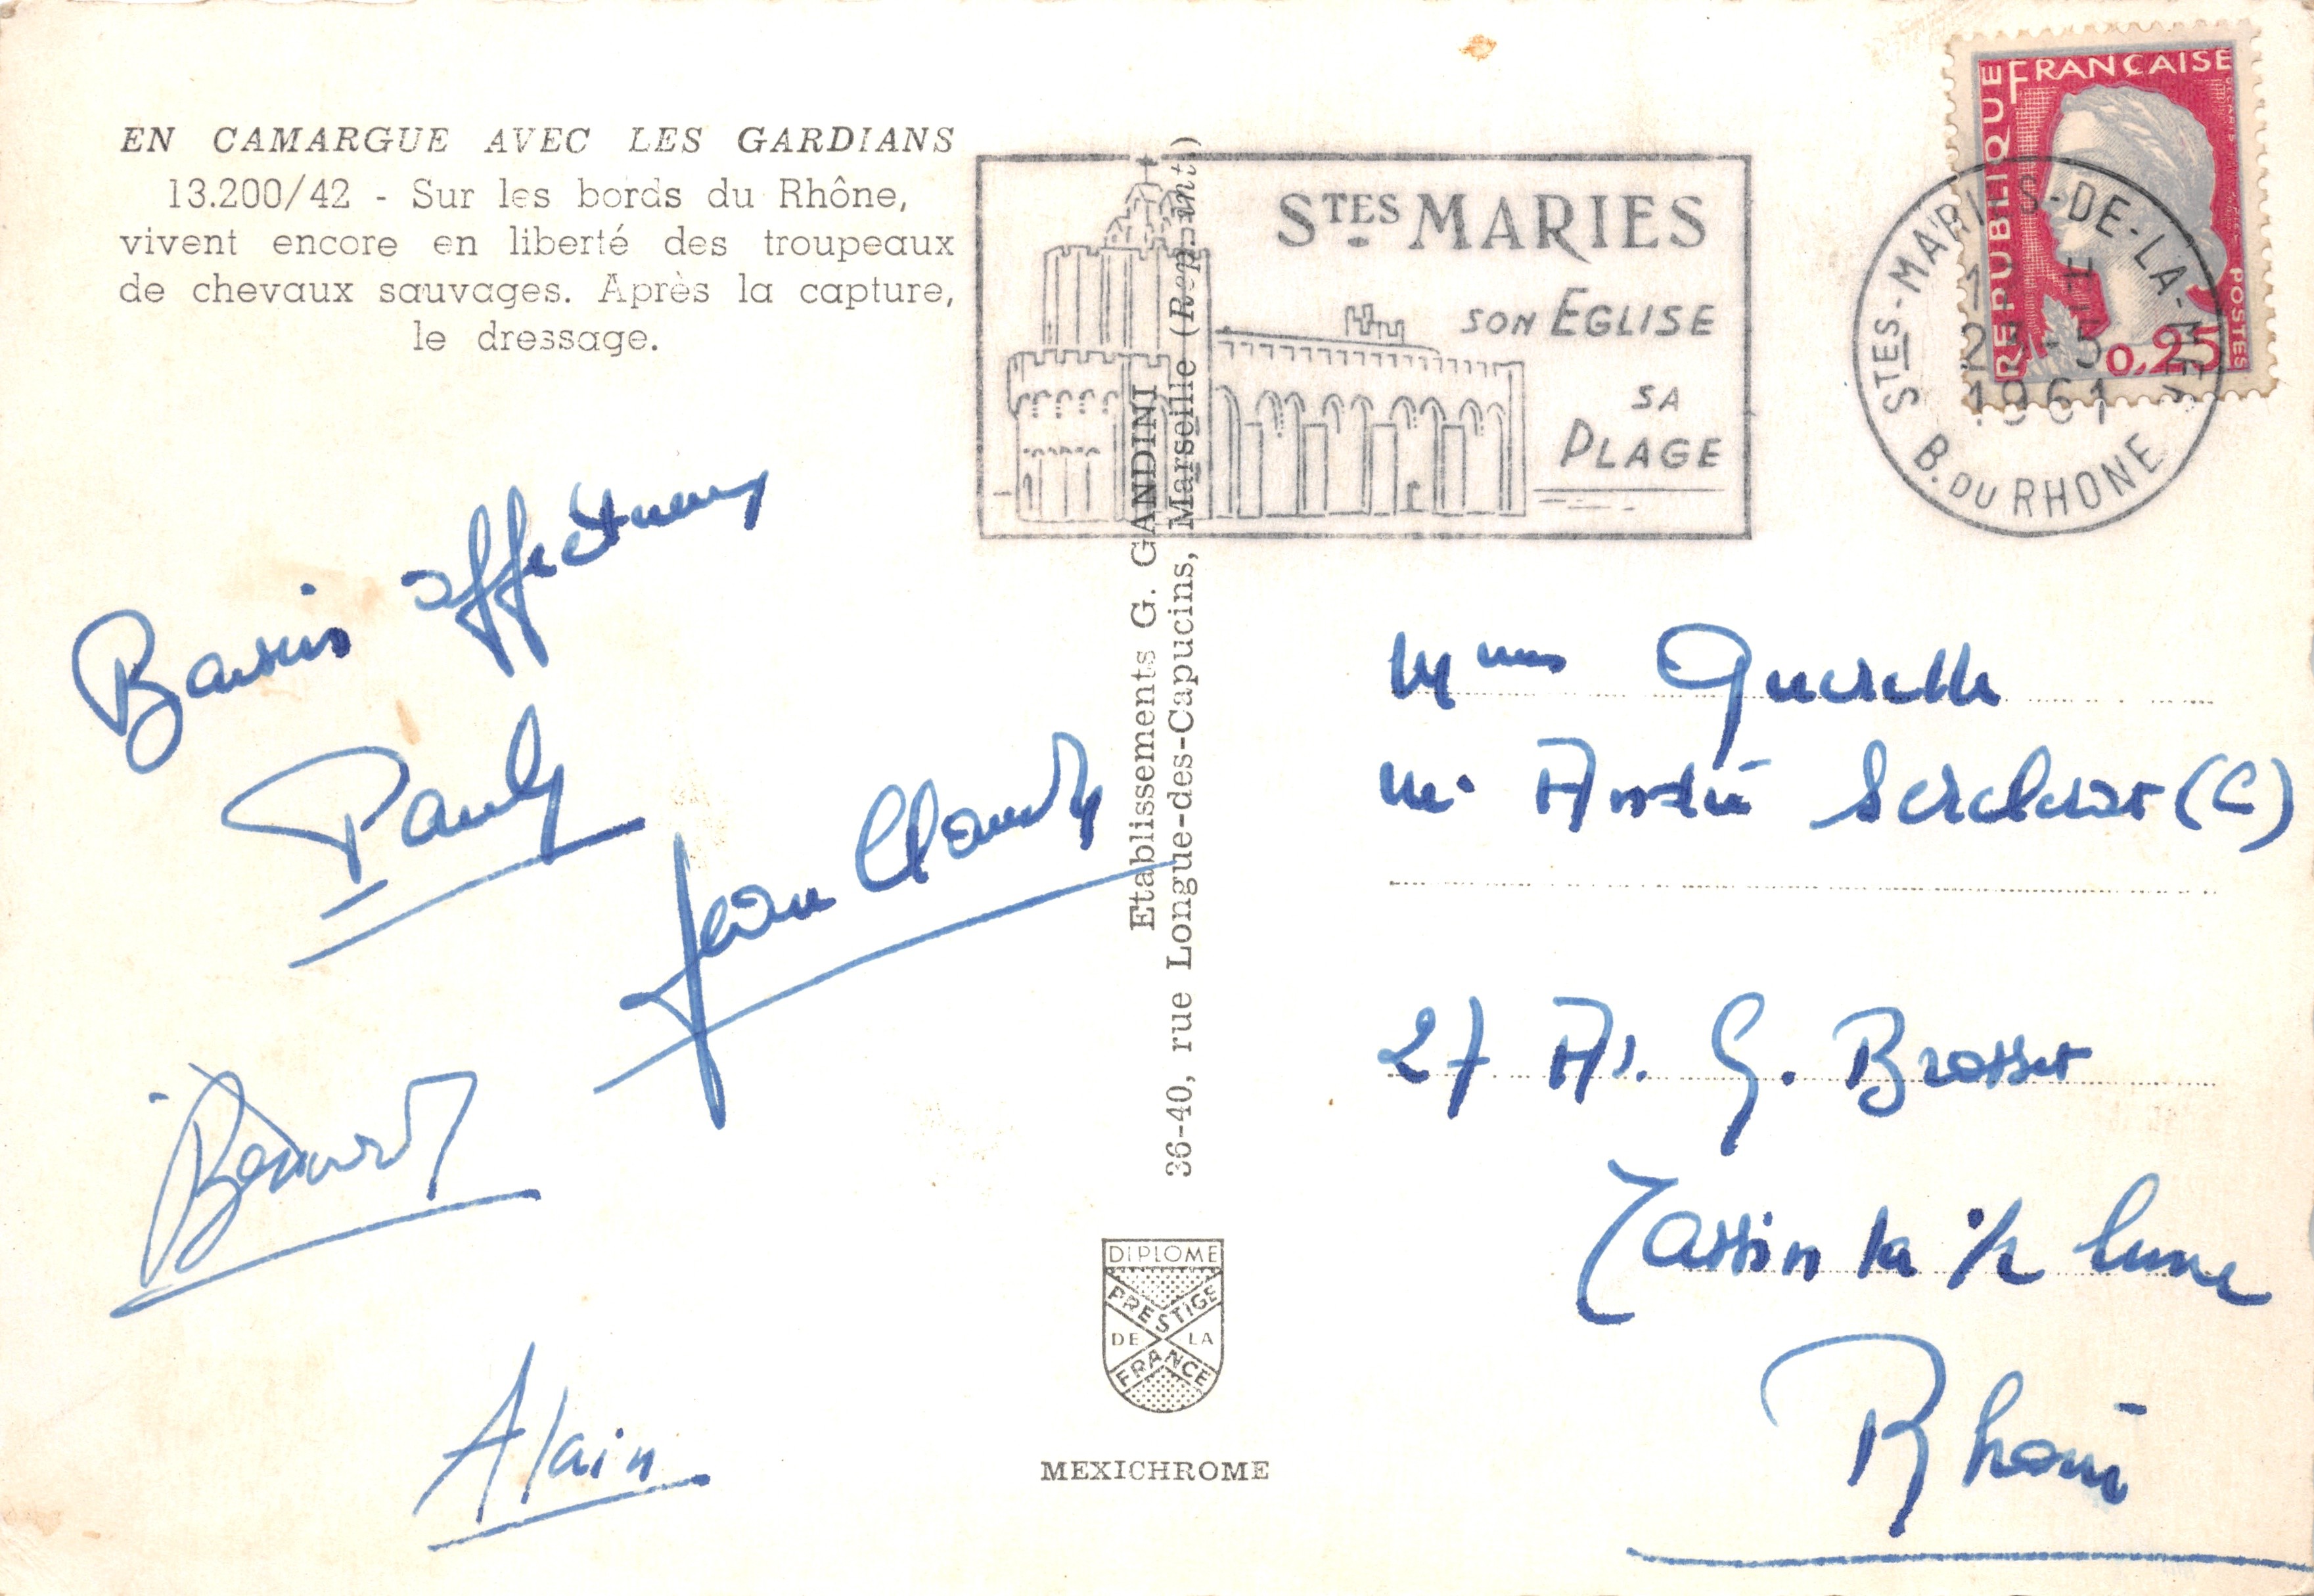 EN CAMARGUE AVEC LES GARDIANS
13.200/42 - Sur les bords du Rhône,
vivent encore en liberté des troupeaux
de chevaux sauvages. Après la capture,
le dressage.
Baisers affectueux
Pauly
Jean Claude
Bernard
Alain
Etablissements G. GANDINI
36-40, rue Longue-des-Capucins, Marseille (Rep. int.)
DIPLOME
PRESTIGE
DE LA
FRANCE
MEXICHROME
STES MARIES
SON EGLISE
SA
PLAGE
REPUBLIQUE FRANÇAISE
POSTES
0,25
STES-MARIES-DE-LA-MER
1961
B. DU RHONE
Mmes
Mr André (C)
27 Av. G. Brosset
Tassin la 1/2 lune
Rhône